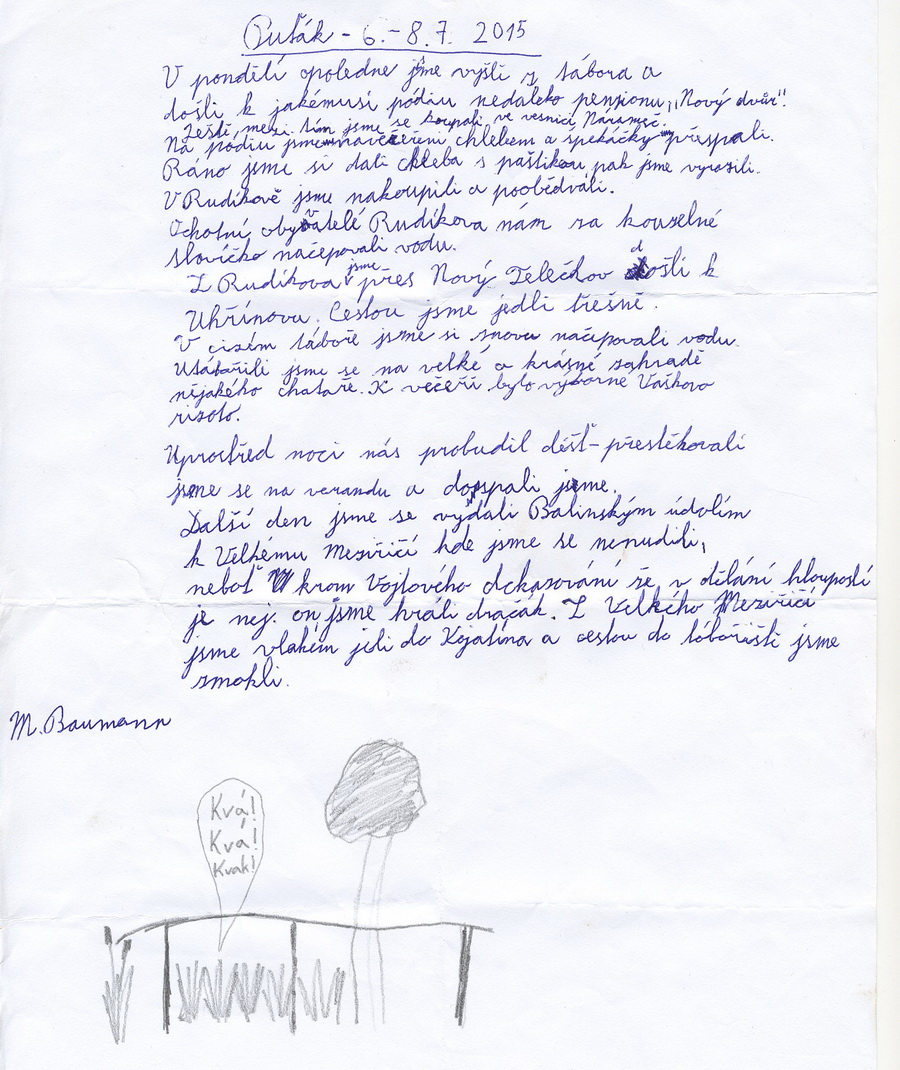 Puťák - 6.-8.7. 2015
V pondělí opoledne jsme vyšli z tábora a
došli k jakémusi pódiu nedaleko pensionu „Nový dvůr".
Ještě mezi tím jsme se koupali ve vesnici Nárameč.
Na pódiu jsme navečeřeni chlebem a špekáčky přespali.
Ráno jsme si dali chleba s paštikou, pak jsme vyrazili.
V Rudíkově jsme nakoupili a poobědvali.
Ochotní obyvatelé Rudíkova nám za kouzelné
slovíčko načepovali vodu.
Z Rudíkova jsme přes Nový Telečkov došli k
Uhřínovu. Cestou jsme jedli třešně.
V cizím táboře jsme si znovu načepovali vodu.
Utábořili jsme se na velké a krásné zahradě
nějakého chataře. K večeři bylo výborné Vaškovo
rizoto.
Uprostřed noci nás probudil déšť - přestěhovali
jsme se na verandu a dospali jsme.
Další den jsme se vydali Balinským údolím
k Velkému Meziříčí kde jsme se nenudili,
neboť krom Vojtového dokazování že v dělání hloupostí
je nej. on, jsme hráli dračák. Z Velkého Meziříčí
jsme vlakem jeli do Kojatína a cestou do tábořiště jsme
zmokli.
M. Baumann
Kvá!
Kvá!
Kvak!